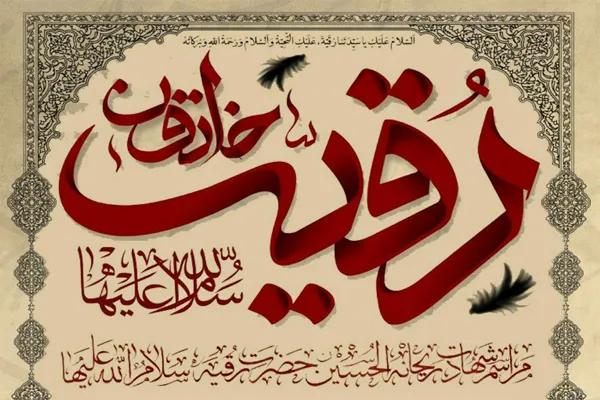 اَلسَّلامُ عَلَيْكِ يا سَيِّدَتَنا رُقَيَّةَ، عَلَيْكِ التَّحِيَّةُ وَ السَّلامُ وَ رَحْمَةُ اللهِ وَ بَرَكاتُهُ
رُقیه خاتون
سلام الله علیها
مراسم شهادت ریحانة الحسین حضرت رقیه سلام الله علیها